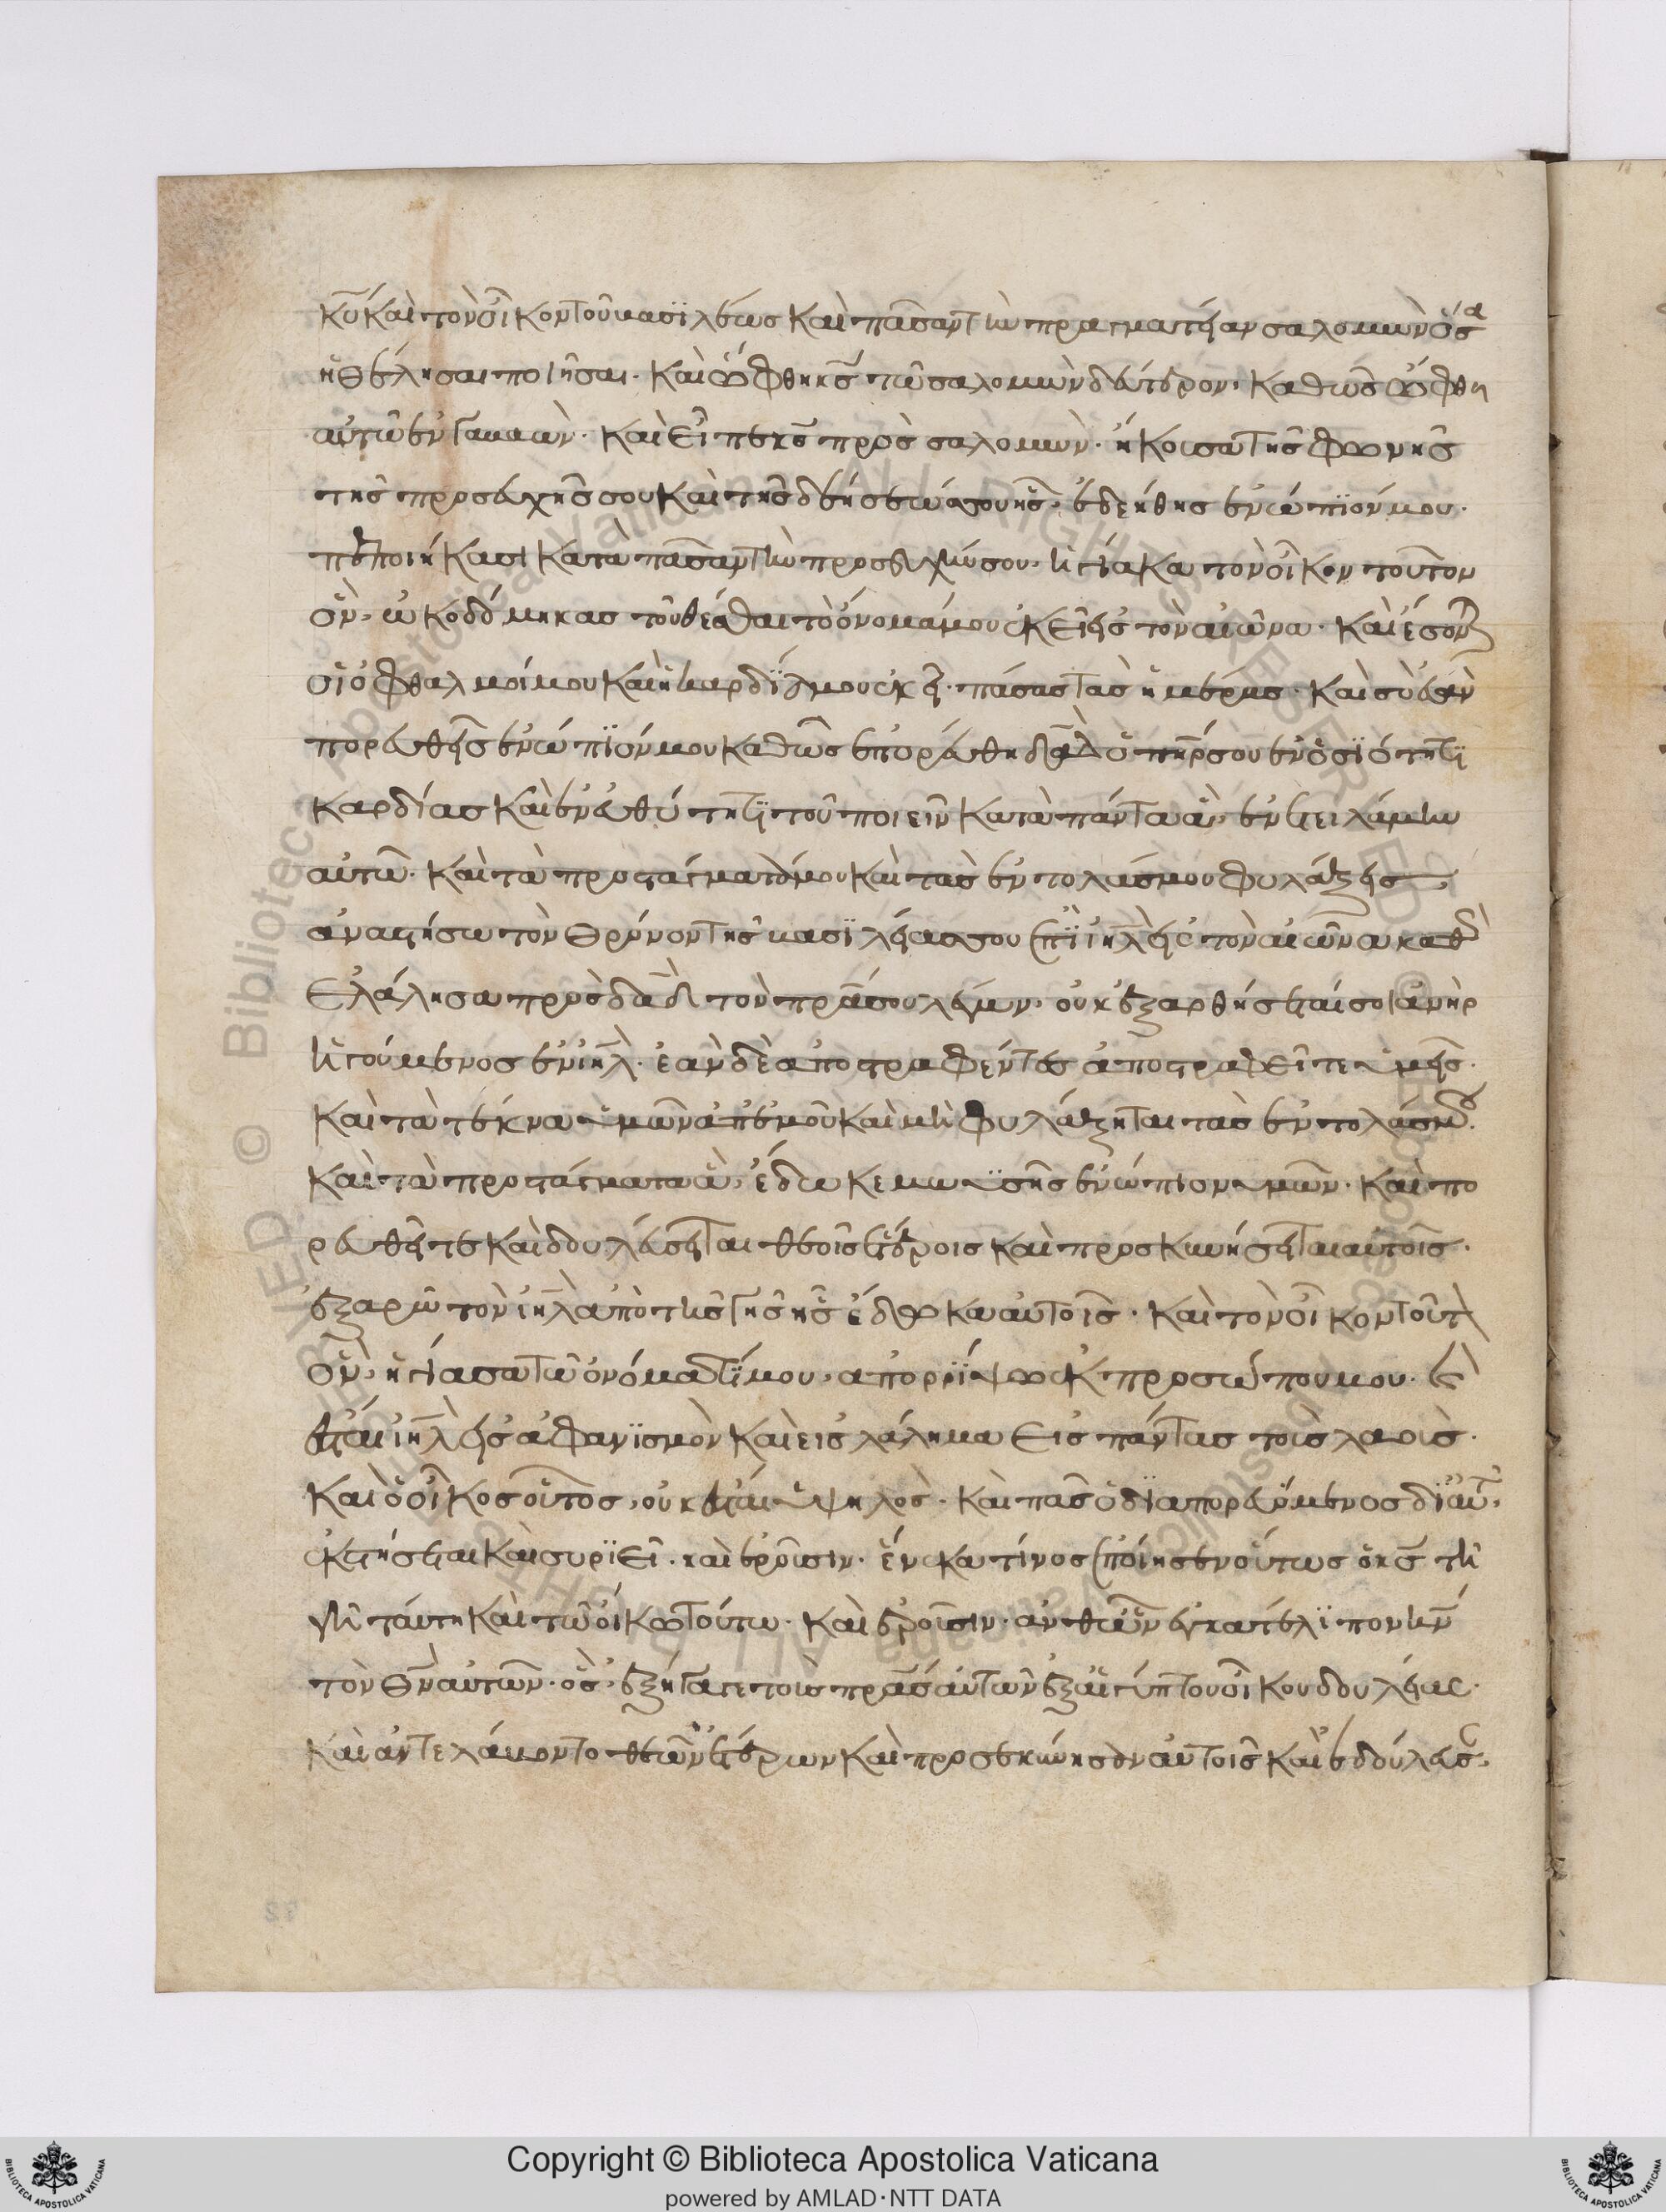 κ̅υ̅ καὶ τὸν οἶκον τοῦ βασιλέως καὶ πᾶσαν τὴν πραγματείαν σαλομὼν ὅσα
ἠθέλησαι ποιῆσαι· καὶ ὤφθη κ̅ς̅ τῶ σαλομὼν δεύτερον, καθὼς ὤφθη
αὐτῶ ἐν γαβαών· καὶ εἶπε κ̅ς̅ πρὸς σαλομών· ἤκουσα τῆς φωνῆς
τῆς προσευχῆς σου καὶ τῆς δεήσεώς σου ἧς ἐδεήθης ἐνώπιόν μου·
πεποιήκα σοι κατὰ πᾶσαν τὴν προσευχήν σου, ἡγίακα τὸν οἶκον τοῦτον
ὃν ὠκοδόμηκας τοῦ θέσθαι τὸ ὄνομά μου ἐκεῖ εἰς τὸν αἰῶνα· καὶ ἔσονται
οἱ ὀφθαλμοί μου καὶ ἡ καρδία μου ἐκεῖ πάσας τὰς ἡμέρας· καὶ σὺ ἐὰν
πορευθεῖς ἐνώπιόν μου καθὼς ἐπορεύθη δα̅δ̅ ὁ π̅η̅ρ̅ σου ἐν ὁσιότητι
καρδίας καὶ ἐν εὐθύτητι τοῦ ποιεῖν κατὰ πάντα ἃ ἐντειλάμην
αὐτῶ· καὶ τὰ προστάγματά μου καὶ τὰς ἐντολάς μου φυλάξεις,
ἀναστήσω τὸν θρόνον τῆς βασιλείας σου ἐπὶ ι̅η̅λ̅ εἰς τὸν αἰῶνα καθὼς
ἐλάλησα πρὸς δα̅δ̅ τὸν π̅ρ̅α̅ σου λέγων· οὐκ ἐξαρθήσεταί σοι ἀνὴρ
ἡγούμενος ἐν ι̅η̅λ̅· ἐὰν δὲ ἀποστραφέντες ἀποστραφεῖτε ὑμεῖς·
καὶ τὰ τέκνα ὑμῶν ἀπ' ἐμοῦ καὶ μὴ φυλάξηται τὰς ἐντολάς μου·
καὶ τὰ προστάγματα ἃ ἔδωκε μωυσῆς ἐνώπιον ὑμῶν· καὶ πο
ρευθεῖτε καὶ δουλεύσεται θεοῖς ἑτέροις καὶ προσκυνήσεται αὐτοῖς·
ἐξαρῶ τὸν ι̅η̅λ̅ ἀπὸ τῆς γῆς ἧς ἔδωκα αὐτοῖς· καὶ τὸν οἶκον τοῦτον
ὃν ἡγίασα τῶ ὀνόματί μου, ἀπορρίψω ἐκ προσώπου μου· καὶ
ἔσται ι̅η̅λ̅ εἰς ἀφανισμὸν καὶ εἰς λάλημα εἰς πάντας τοὺς λαούς·
καὶ ὁ οἶκος οὗτος, οὐκ ἔσται ὑψηλός· καὶ πᾶς ὁ διαπορευόμενος δι' αὐτοῦ,
ἐκστήσεται καὶ συριεῖ· καὶ ἐροῦσιν· ἕνεκα τίνος ἐποίησεν οὕτως ὁ κ̅ς̅ τῆ
γῆ ταύτη καὶ τῶ οἴκω τούτω· καὶ ἐροῦσιν· ἀνθῶν ἐγκατέλιπον κ̅ν̅
τὸν θ̅ν̅ αὐτῶν· ὃς ἐξήγαγε τοὺς π̅ρ̅α̅ς̅ αὐτῶν ἐξ αἰγύπτου οἴκου δουλείας·
καὶ ἀντελάβοντο θεῶν ἑτέρων καὶ προσεκύνησαν αὐτοῖς καὶ ἐδούλευσαν